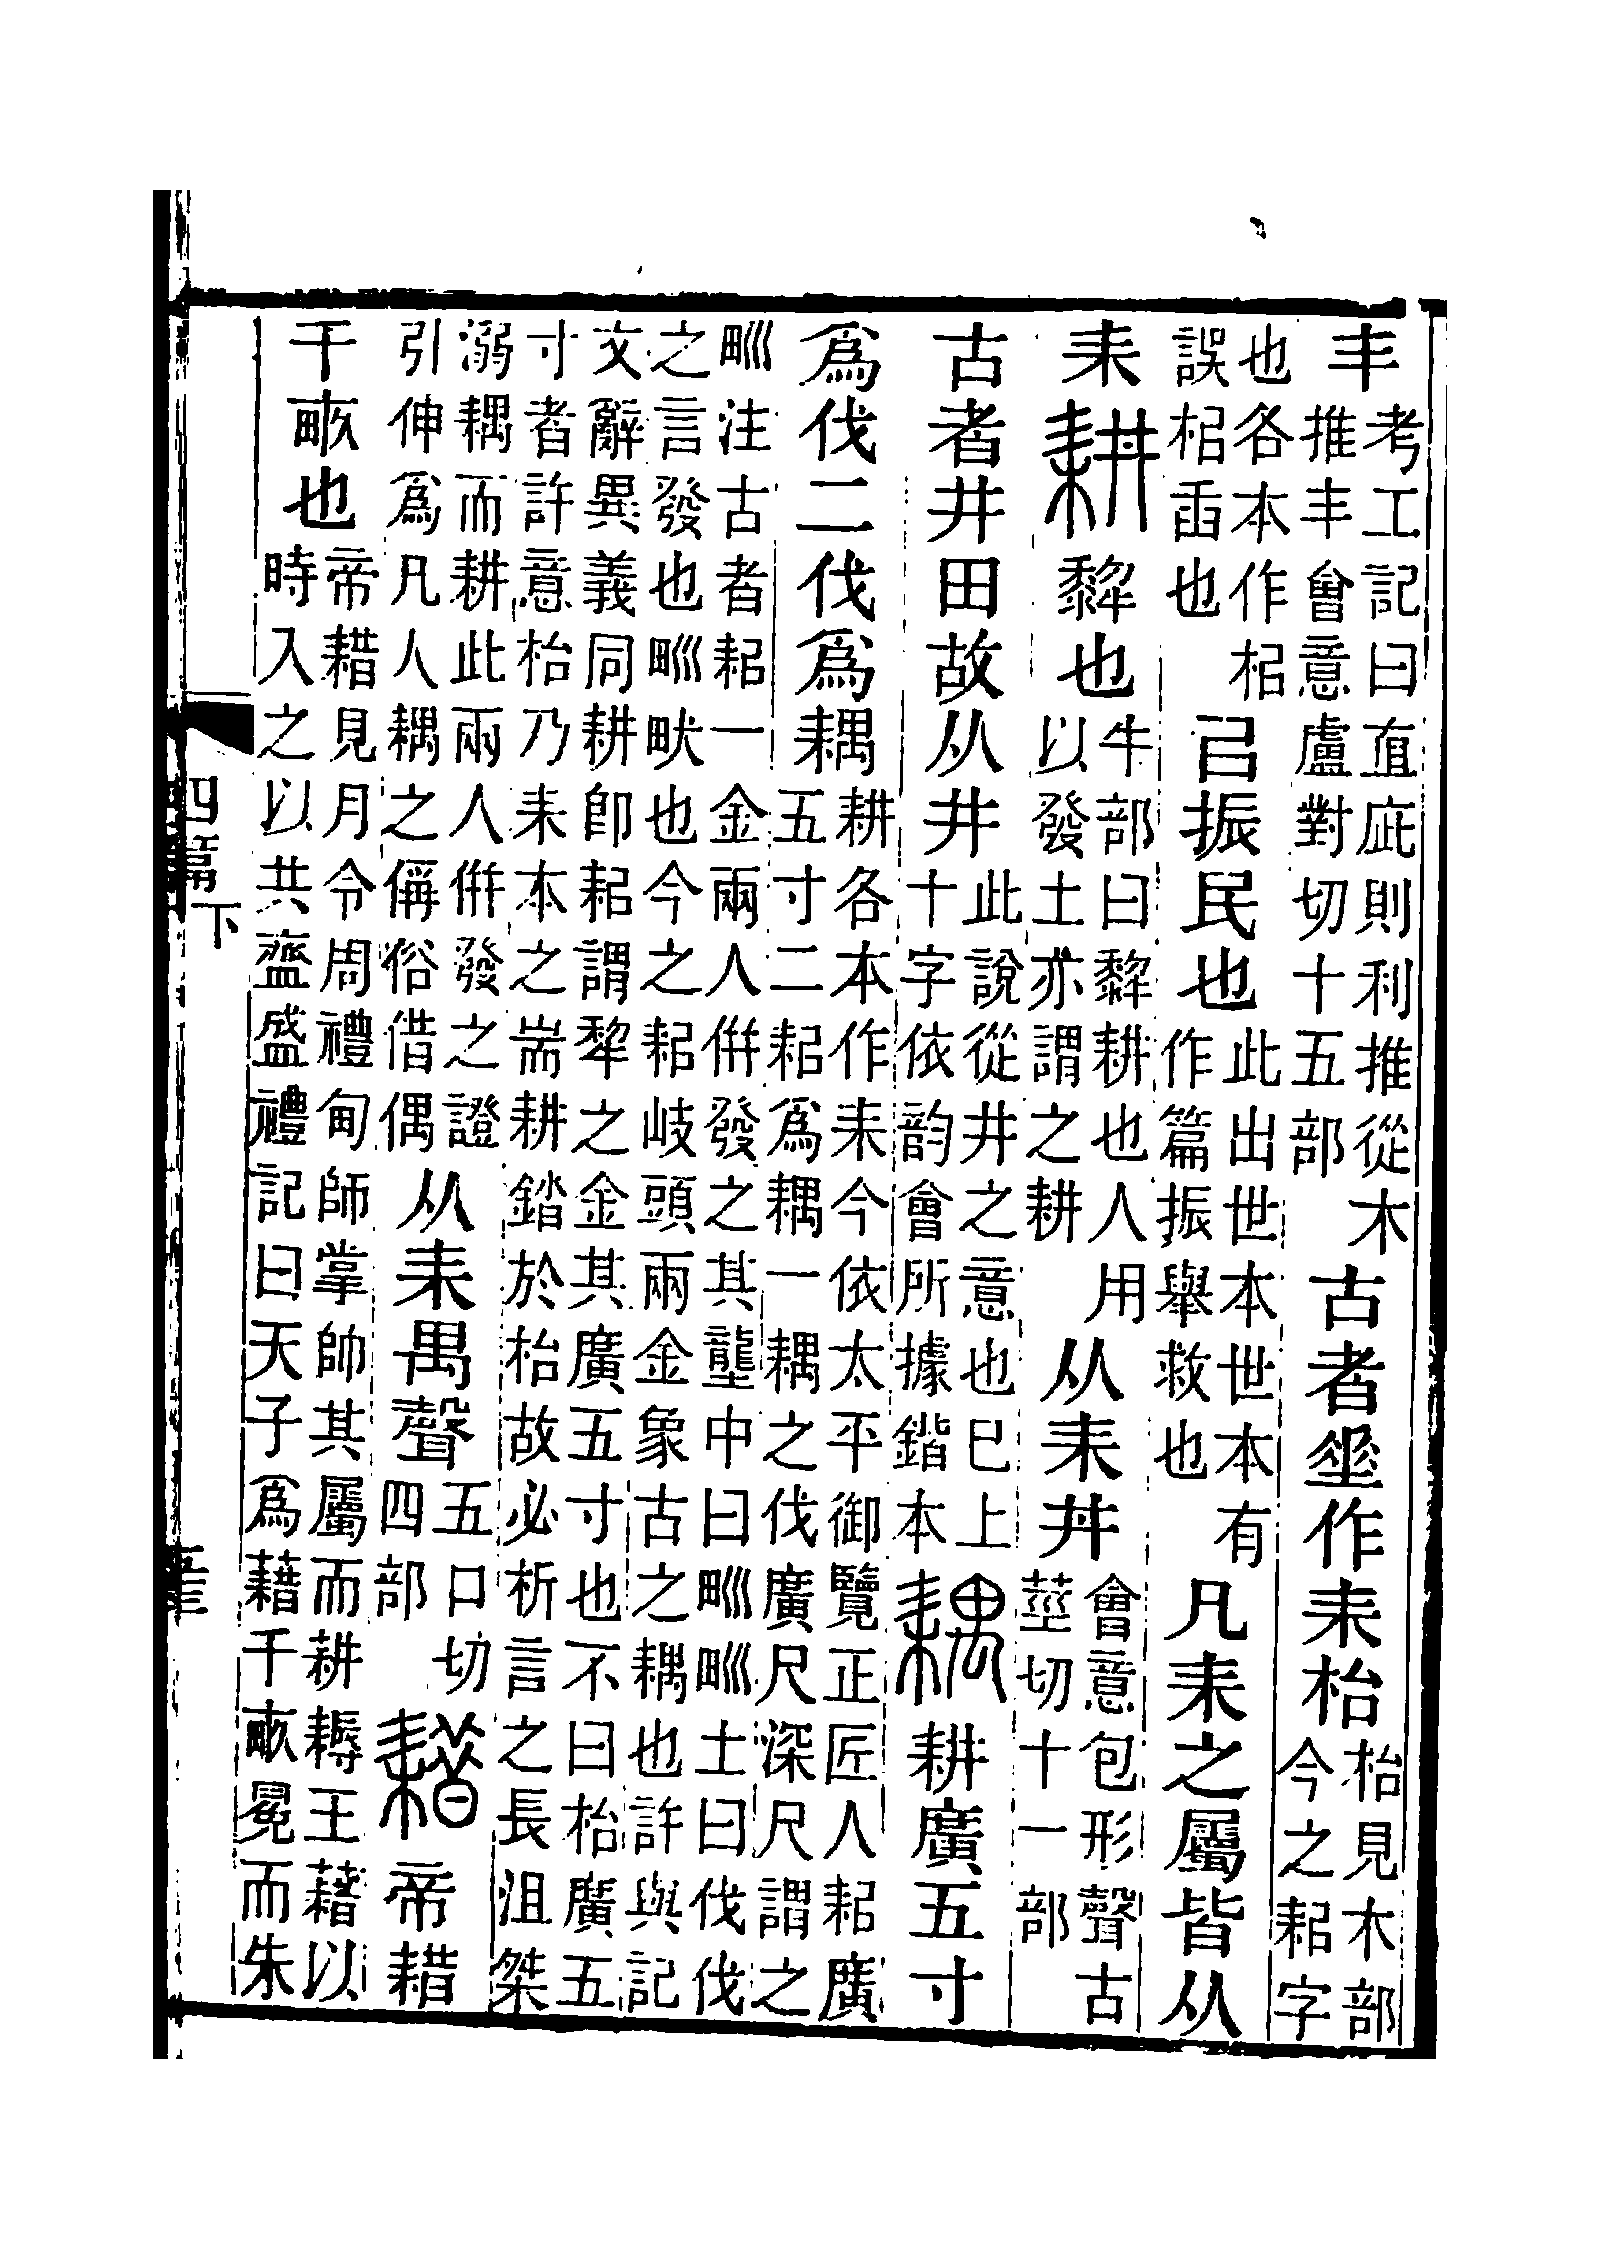 丯考工記曰直庛則利推從木推丯會意盧對切十五部古者𡍮作耒枱枱見木部今之耜字
也各本作梠誤梠臿也㠯振民也此出世本世本有作篇振舉救也凡耒之屬皆从
耒耕犂也牛部曰犂耕也人用以發土亦謂之耕从耒井會意包形聲古莖切十一部
古者井田故从井此說從井之意也已上十字依韵會所據鍇本耦耕廣五寸
爲伐二伐爲耦耕各本作耒今依太平御覽正匠人耜廣五寸二耜爲耦一耦之伐廣尺深尺謂之
𤰕注古者耜一金兩人併發之其壟中曰𤰕𤰕土曰伐伐之言發也𤰕畎也今之耜岐頭兩金象古之耦也許與記
文辭異義同耕卽耜謂犂之金其廣五寸也不曰枱廣五寸者許意枱乃耒本之耑耕錔於枱故必析言之長沮桀
溺耦而耕此兩人併發之證引伸爲凡人耦之偁俗借偶从耒禺聲五口切四部耤帝耤
千畞也帝耤見月令周禮甸師掌帥其屬而耕耨王藉以時入之以共齍盛禮記曰天子爲藉千畞冕而朱
四篇下